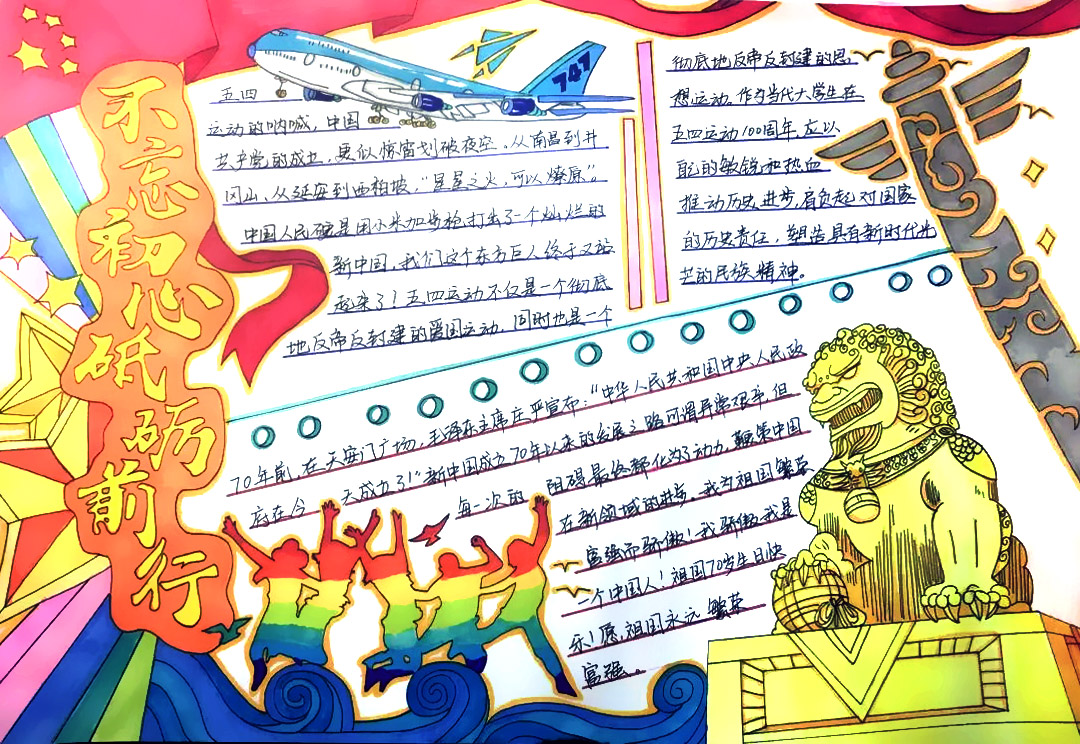 不忘初心砥砺前行
747
五四
运动的呐喊，中国
共产党的成立，更似惊雷划破夜空。从南昌到井
冈山，从延安到西柏坡，“星星之火，可以燎原”。
中国人民硬是用小米加步枪，打出了一个灿烂的
新中国，我们这个东方巨人终于又站
起来了！五四运动不仅是一个彻底
地反帝反封建的爱国运动，同时也是一个
彻底地反帝反封建的思
想运动。作为当代大学生在
五四运动100周年，应以
自己的敏锐和热血
推动历史进步，肩负起对国家
的历史责任，塑造具有新时代光
芒的民族精神。
70年前，在天安门广场，毛泽东主席庄严宣布：“中华人民共和国中央人民政
府在今 天成立了！”新中国成立70年以来的发展之路可谓异常艰辛，但
每一次的 阻碍最终转化为动力，鞭策中国
在新领域的进步。我为祖国繁荣
富强而骄傲！我骄傲我是
一个中国人！祖国70岁生日快
乐！愿祖国永远 繁荣
富强。